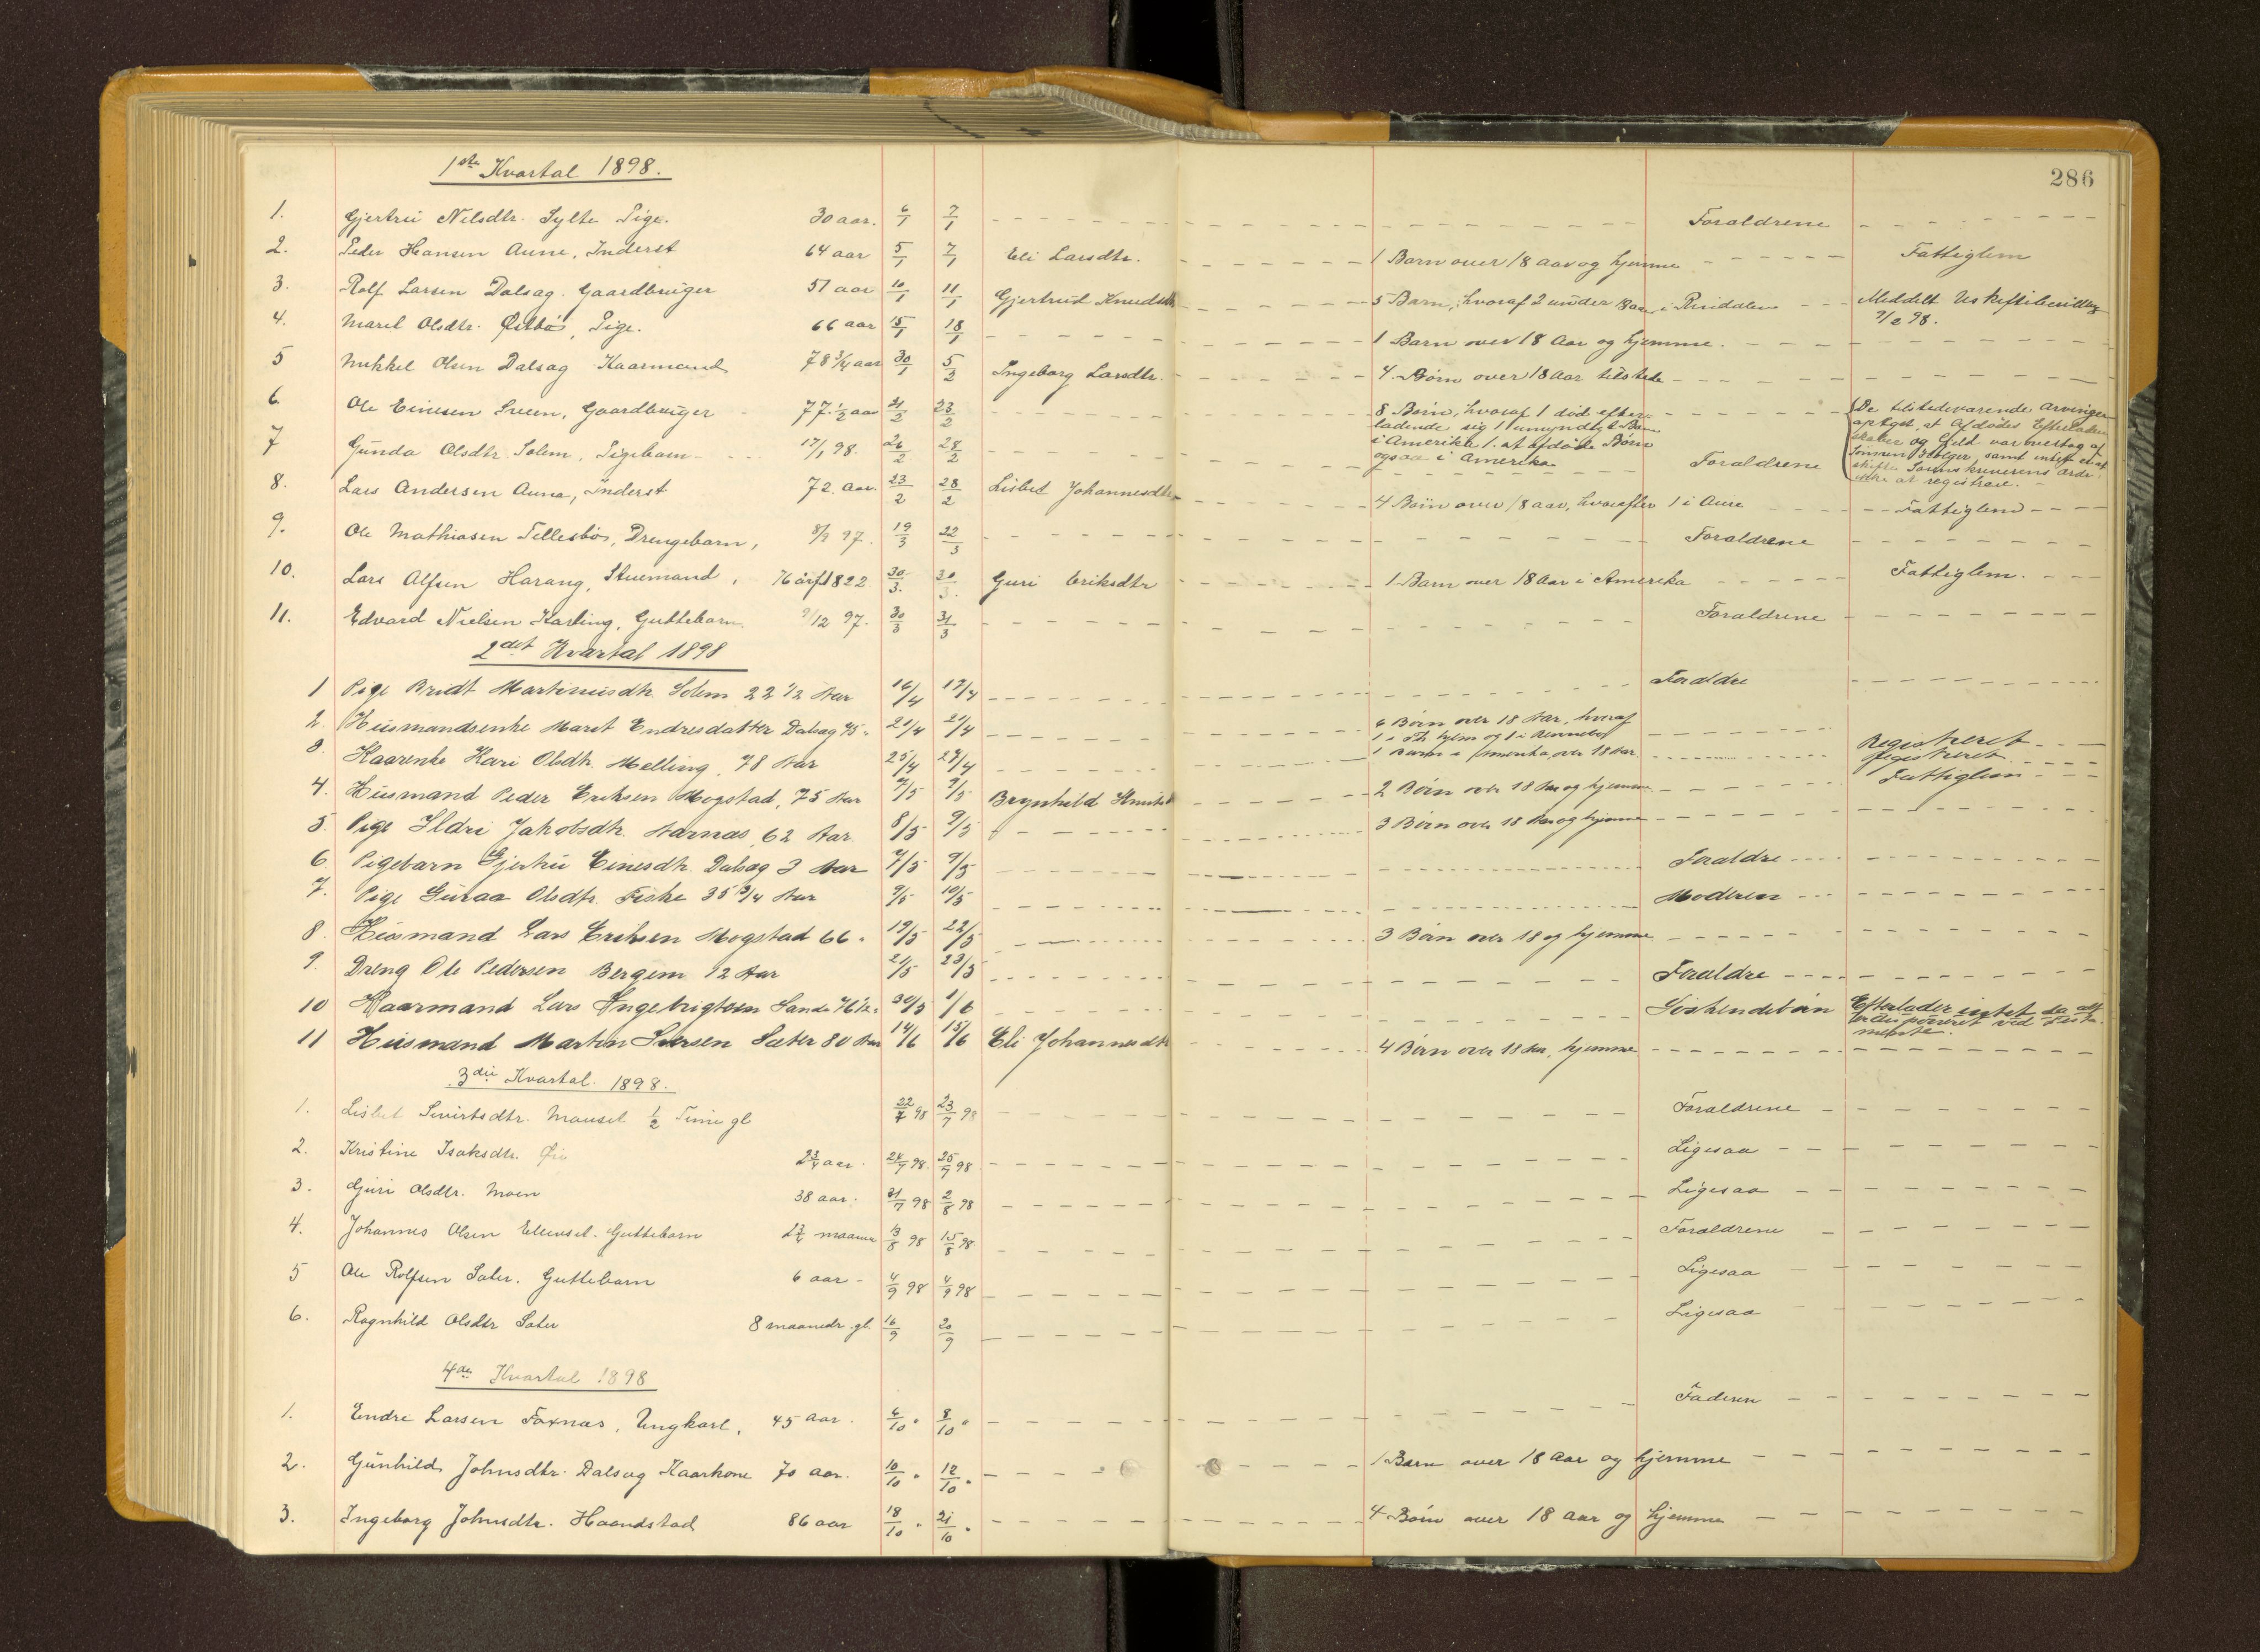 286
1ste Kvartal 1898.
1. Gjertrü Nilsdtr. Sylte Pige. 30 aar. 6/1 7/1 Foraldrene
2. Peder Hansen Aune, Inderst 64 aar 5/1 7/1 Eli Larsdtr. 1 Barn over 18 aar og hjemme Fattiglem
3. Rolf Larsen Dalsag. Gaardbruger 51 aar 10/1 11/1 Gjertrud Knudsdtr 5 Barn, hvoraf 2 under 18 aar i Rindalen Meddelt Uskiftebevilling
9/2 98.
4. Marit Olsdtr. Østbö, Pige. 66 aar 15/1 18/1 1 Barn over 18 Aar og hjemme.
5 Mikkel Olsen Dalsag Kaarmand 78 3/4 aar 30/1 5/2 Ingeborg Larsdtr. 4 Börn over 18 Aar tilstede
6. Ole Einersen Sveen, Gaardbruger 77 1/2 aar 21/2 23/2 8 Börn, hvoraf 1 död efter-
ladende sig 1 umyndigt Barn
i Amerika 1 af afdöde Börn
ogsaa i Amerika
De tilstedevarende Arvinger
opgiet, at Afdödes Efterladen
skaber og Gjeld var overtag af
Sönnen Holger, samt intet
skifte Sorenskriverens Orde
ikke at registrere.
7 Gunda Olsdtr. Solem, Pigebarn 17/1 98. 26/2 28/2 Foraldrene
8. Lars Andersen Aune, Inderst 72 Aar. 23/2 28/2 Lisbet Johannesdtr 4 Börn over 18 aar, hvorafter 1 i Aure Fattiglem
9. Ole Mathiasen Tellesbö, Drengebarn, 8/9 97. 19/3 22/3 Foraldrene
10. Lars Alfsen Harang, Stuemand, 76 år f 1822 30/3. 30/3. Guri Eriksdtr 1 Barn over 18 Aar i Amerika Fattiglem.
11. Edvard Nielsen Karling, Guttebarn. 9/12 97. 30/3 31/3 Foraldrene
2det Kvartal 1898
1 Pige Bridt Martinusdtr. Solem 22 1/2 Aar 16/4 17/4 Foraldre
2. Husmandsenke Marit Endresdatter Dalsag 75 " 21/4 21/4 6 Börn over 18 Aar, hvoraf
1 i Th.hjem og 1 i Rennebo Registreret
3. Kaarenke Kari Olsdtr. Melling, 78 Aar 25/4 27/4 1 Barn i Amerika, over 18 Aar Registreret
4. Husmand Peder Eriksen Mogstad, 75 Aar 7/5 9/5 Brynhild Knutsd 2 Börn over 18 Aar og hjemme Fattiglem
5. Pige Ildri Jakobsdtr. Aarnas, 62 Aar 8/5 9/5 3 Börn over 18 Aar og hjemme
6. Pigebarn Gjertrü Einesdtr. Dalsag 3 Aar 7/5 9/5 Foraldre
7. Pige Guraa Olsdtr. Fiske 35 3/4 Aar 9/5 10/5 Moderen
8. Husmand Lars Eriksen Mogstad 66 " 19/5 22/5 3 Börn over 18 og hjemme
9. Dreng Ole Pedersen Bergem 12 Aar 21/5 23/5 Foraldre
10 Kaarmand Lars Ingebrigtsen Sande 76 1/2 " 30/5 1/6 Söskendebörn Efterlader intet da alt
er disponeret ved testa-
mente.
11 Husmand Marten Iversen Sæter 80 Aar 14/6 15/6 Eli Johannesdtr 4 Börn over 18 Aar, hjemme
3die Kvartal. 1898.
1. Lisbet Sivertsdtr. Mauset 1/2 Time gl 22/7 98 23/7 98 Foraldrene
2. Kristine Isaksdtr. Öie 2 3/4 aar. 24/7 98. 25/7 98 Ligesaa
3. Guri Olsdtr. Moen 38 aar. 31/7 98 2/8 98 Ligesaa
4. Johannes Olsen Ellevset. Guttebarn 13/8 98 15/8 98 Foraldrene
5 Ole Rolfsen Sater. Guttebarn 6 aar - 4/9 98 4/9 98 Ligesaa
6. Ragnhild Olsdtr Sater 8 maaneder. gl. 16/9 20/9 Ligesaa
4de Kvartal 1898
1. Endre Larsen Foxnas, Ungkarl, 45 aar. 6/10 " 8/10 " Faderen
2. Gunhild Johnsdtr. Dalsag Kaarkone 70 aar. 10/10 " 12/10 " 1 Barn over 18 Aar og hjemme
3. Ingeborg Johnsdtr. Haandstad 86 aar 18/10 " 21/10 " 4 Börn over 18 aar og hjemme